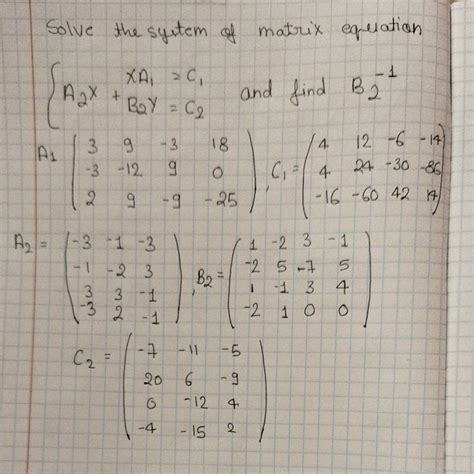 Solve the system of matrix equation
XA₁ = C₁
A₂X + B₂Y = C₂ and find B₂⁻¹
A₁ ( 3 9 -3 18
-3 -12 9 0
2 9 -9 -25 )
, C₁ = ( 4 12 -6 -14
4 24 -30 -86
-16 -60 42 14 )
A₂ = ( -3 -1 -3
-1 -2 3
3 3 -1
-3 2 -1 )
, B₂ = ( 1 -2 3 -1
-2 5 -7 5
1 -1 3 4
-2 1 0 0 )
C₂ = ( -7 -11 -5
20 6 -9
0 -12 4
-4 -15 2 )